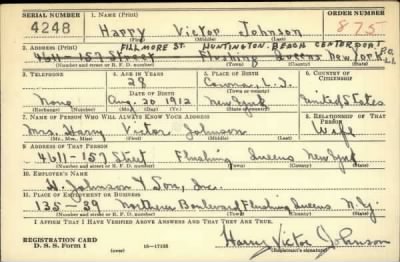 SERIAL NUMBER 1. NAME (Print) ORDER NUMBER
4248 Harry Victor Johnson 875
(First) (Middle) (Last)
FILLMORE ST. HUNTINGTON BEACH CENTERPORT
2. ADDRESS (Print)
4611-157 Street Flushing Queens New York
(Number and street or R. F. D. number) (Town) (County) (State)
3. TELEPHONE 4. AGE IN YEARS 5. PLACE OF BIRTH 6. COUNTRY OF CITIZENSHIP
28 Corona, L.I.
DATE OF BIRTH (Town or county)
None Aug. 20 1912 New York United States
(Exchange) (Number) (Mo.) (Day) (Yr.) (State or country)
7. NAME OF PERSON WHO WILL ALWAYS KNOW YOUR ADDRESS 8. RELATIONSHIP OF THAT PERSON
Mrs. Harry Victor Johnson Wife
(Mr., Mrs., Miss) (First) (Middle) (Last)
9. ADDRESS OF THAT PERSON
4611-157 Street Flushing Queens New York
(Number and street or R. F. D. number) (Town) (County) (State)
10. EMPLOYER'S NAME
H. Johnson & Son, Inc.
11. PLACE OF EMPLOYMENT OR BUSINESS
135-39 Northern Boulevard Flushing Queens N.Y.
(Number and street or R. F. D. number) (Town) (County) (State)
I AFFIRM THAT I HAVE VERIFIED ABOVE ANSWERS AND THAT THEY ARE TRUE.
REGISTRATION CARD
D. S. S. Form 1 (over) 16-17105 Harry Victor Johnson
(Registrant's signature)